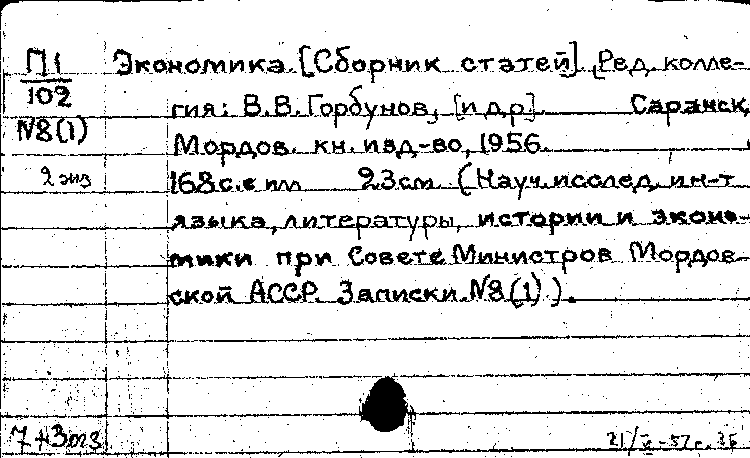 П1
102
№8(1)
2 экз
Экономика. [Сборник статей]. Ред. колле-
гия: В.В. Горбунов, [и др]. Саранск,
Мордов. кн. изд-во, 1956.
168 с. с ил 23 см. (Науч. исслед. ин-т
языка, литературы, истории и эконо-
мики при Совете Министров Мордов-
ской АССР. Записки. №8(1)).